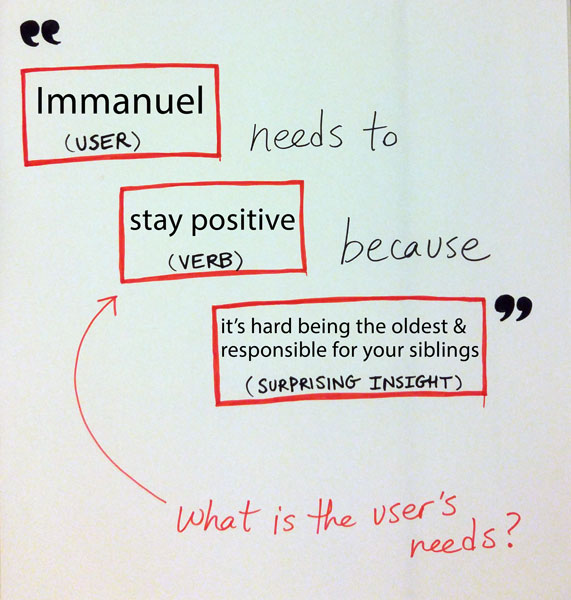 “
Immanuel
(USER)
needs to
stay positive
(VERB)
because
it's hard being the oldest &
responsible for your siblings
(SURPRISING INSIGHT)
”
What is the user's
needs?